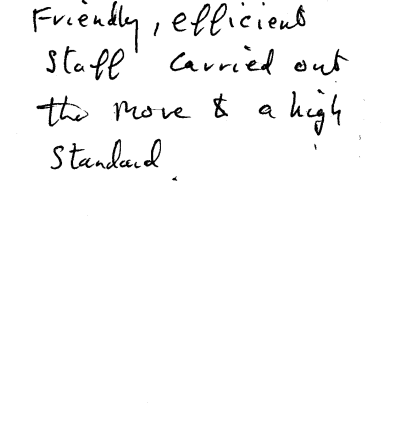 Friendly, efficient
Staff carried out
the move to a high
Standard.